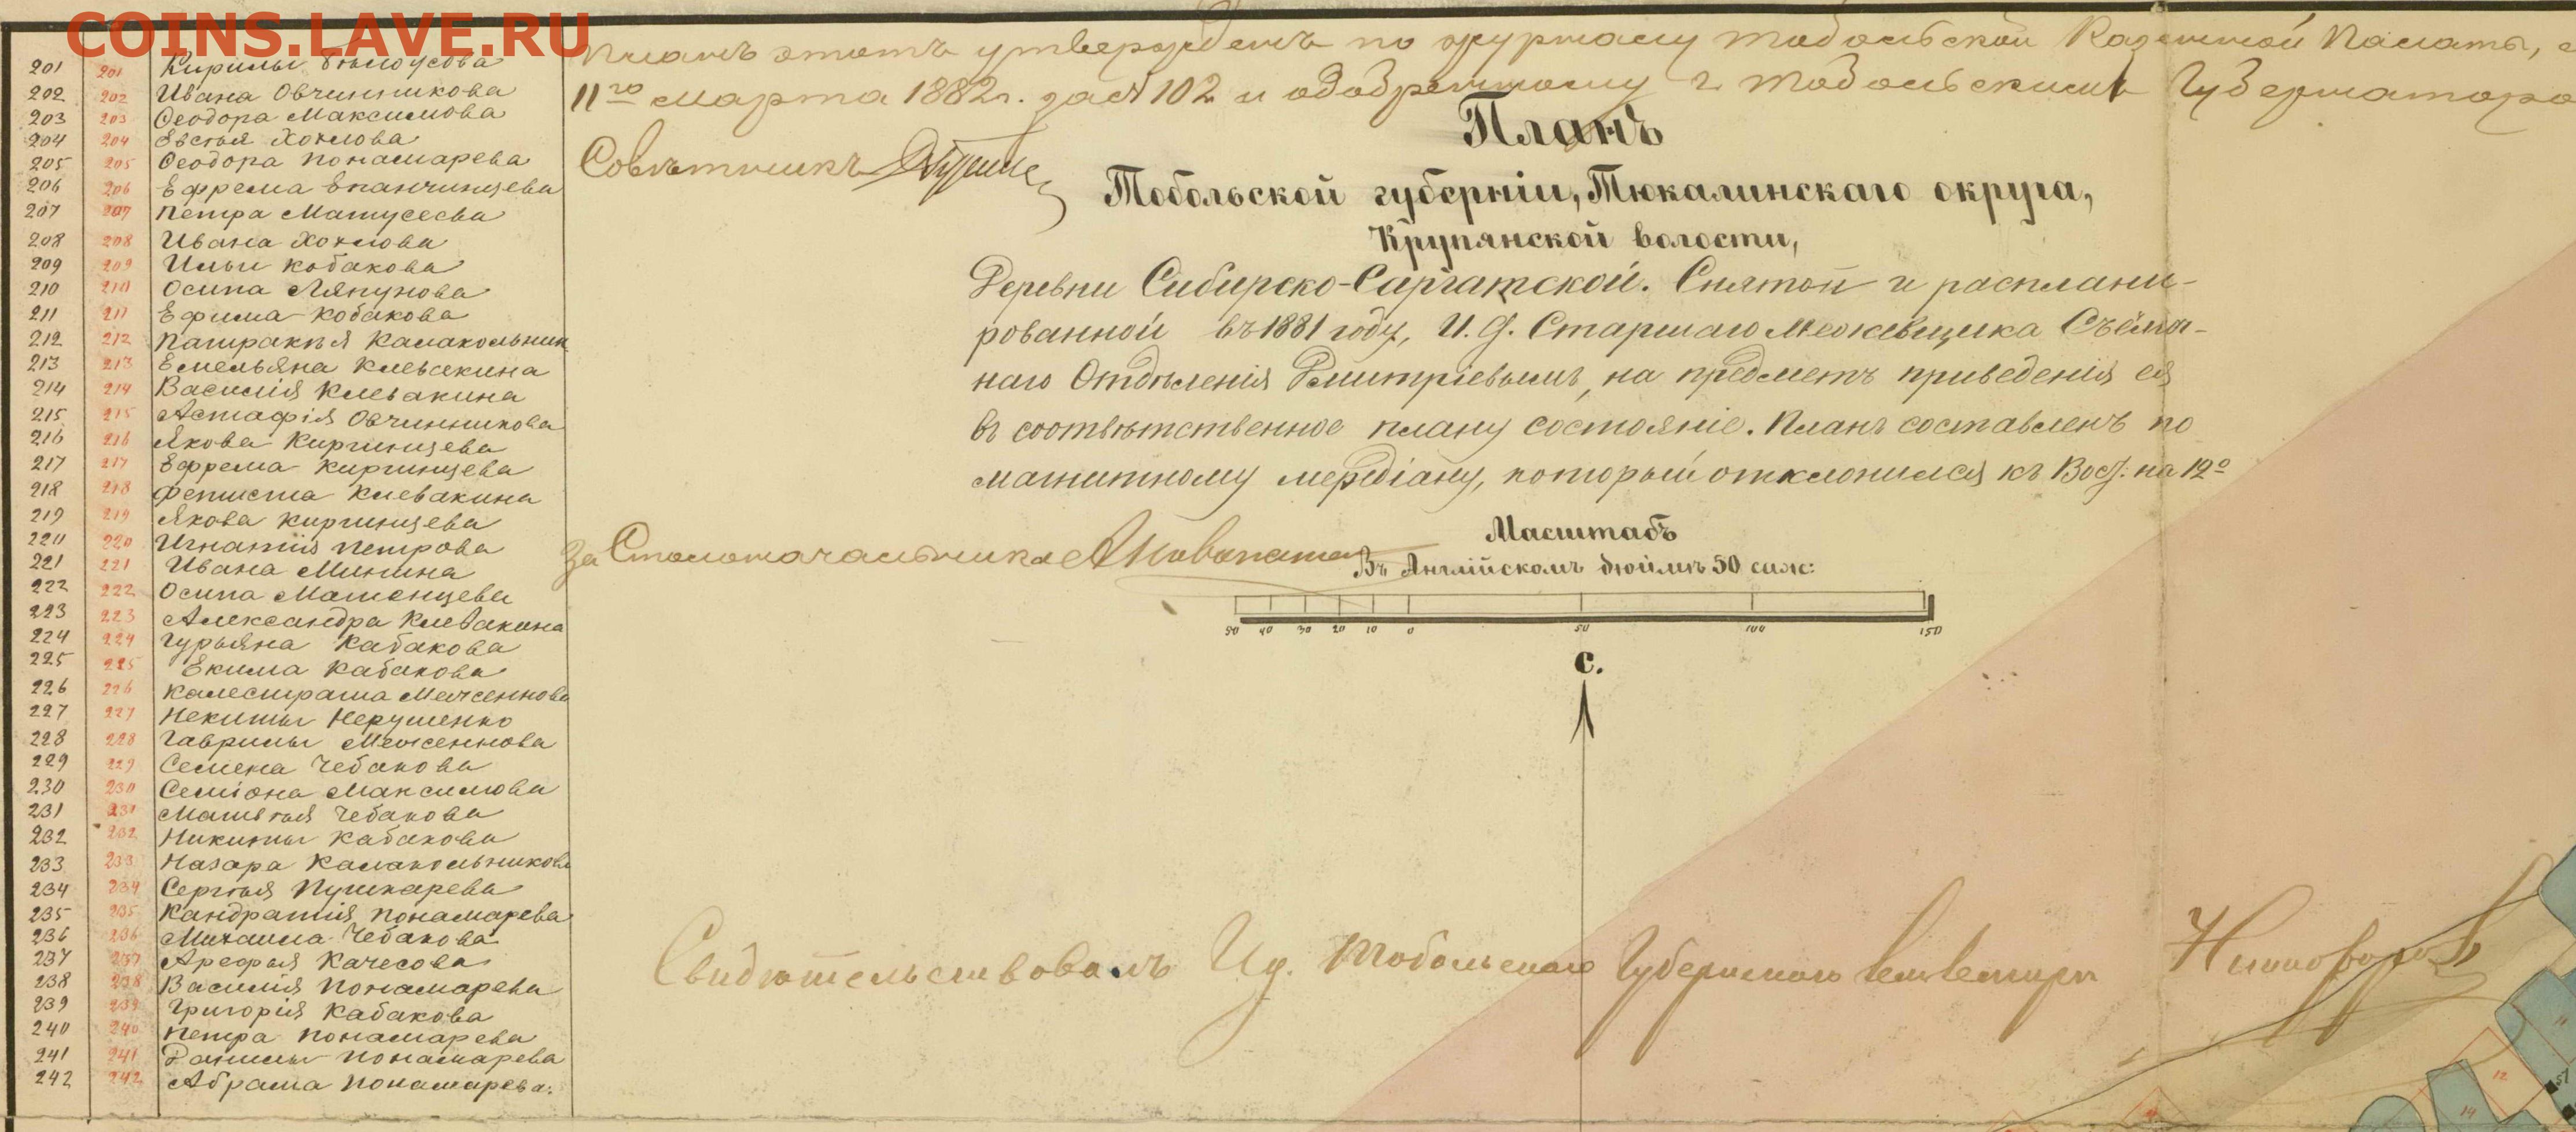 COINS.LAVE.RU
201 201 Кирилы Бѣлоусова
202 202 Ивана Овчинникова
203 203 Ѳеодора Максимова
204 204 Евстѣя Хохлова
205 205 Ѳеодора Понамарева
206 206 Ефрема Епанчинцева
207 207 Петра Матусеева
208 208 Ивана Хохлова
209 209 Ильи Кобакова
210 210 Осипа Ляпунова
211 211 Ефима Кобакова
212 212 Патракѣя Калакольник
213 213 Емельяна Клевакина
214 214 Василія Клевакина
215 215 Астафія Овчинникова
216 216 Якова Киргинцева
217 217 Ефрема Киргинцева
218 218 Фетиста Клевакина
219 219 Якова Киргинцева
220 220 Игнатія Петрова
221 221 Ивана Минина
222 222 Осипа Матенцева
223 223 Александра Клевакина
224 224 Гурьяна Кабакова
225 225 Екима Кабакова
226 226 Калистрата Меженнова
227 227 Некиты Нерушенко
228 228 Гаврилы Меженнова
229 229 Семена Чебакова
230 230 Семіона Максимова
231 231 Матвѣя Чебакова
232 232 Никиты Кабакова
233 233 Назара Калакольникова
234 234 Сергѣя Пушкарева
235 235 Кандратія Понамарева
236 236 Михаила Чебакова
237 237 Арефья Качесова
238 238 Василія Понамарева
239 239 Григорія Кабакова
240 240 Петра Понамарева
241 241 Данилы Понамарева
242 242 Абрама Понамарева.
Планъ этотъ утвержденъ по журналу Тобольской Казенной Палаты,
11го Марта 1882г. за № 102 и одобренному г. Тобольскимъ Губернаторо
Совѣтникъ
Планъ
Тобольской губерніи, Тюкалинскаго округа,
Крупянской волости,
Деревни Сибирско-Саргатской. Снятой и расплани-
рованной въ 1881 году, И. д. Старшаго Межевщика Съёмоч-
наго Отдѣленія Дмитріевымъ, на предметъ приведенія ея
въ соотвѣтственное плану состояніе. Планъ составленъ по
магнитному мередіану, который отклонился къ Вост. на 12°
За Столоначальника
Масштабъ
Въ Англійскомъ дюймѣ 50 саж:
50 40 30 20 10 0 50 100 150
С.
Свидѣтельствовалъ Ид. Тобольскаго Губернскаго Землемѣра Никифоров
11
12
51
14